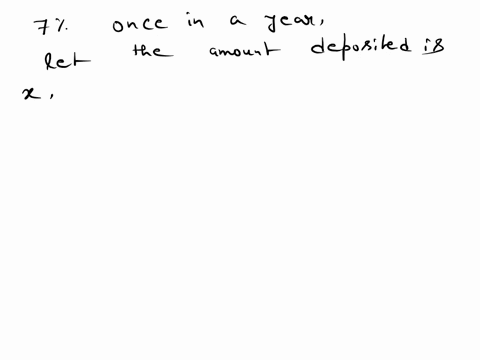 7% once in a year,
let the amount deposited is
x,